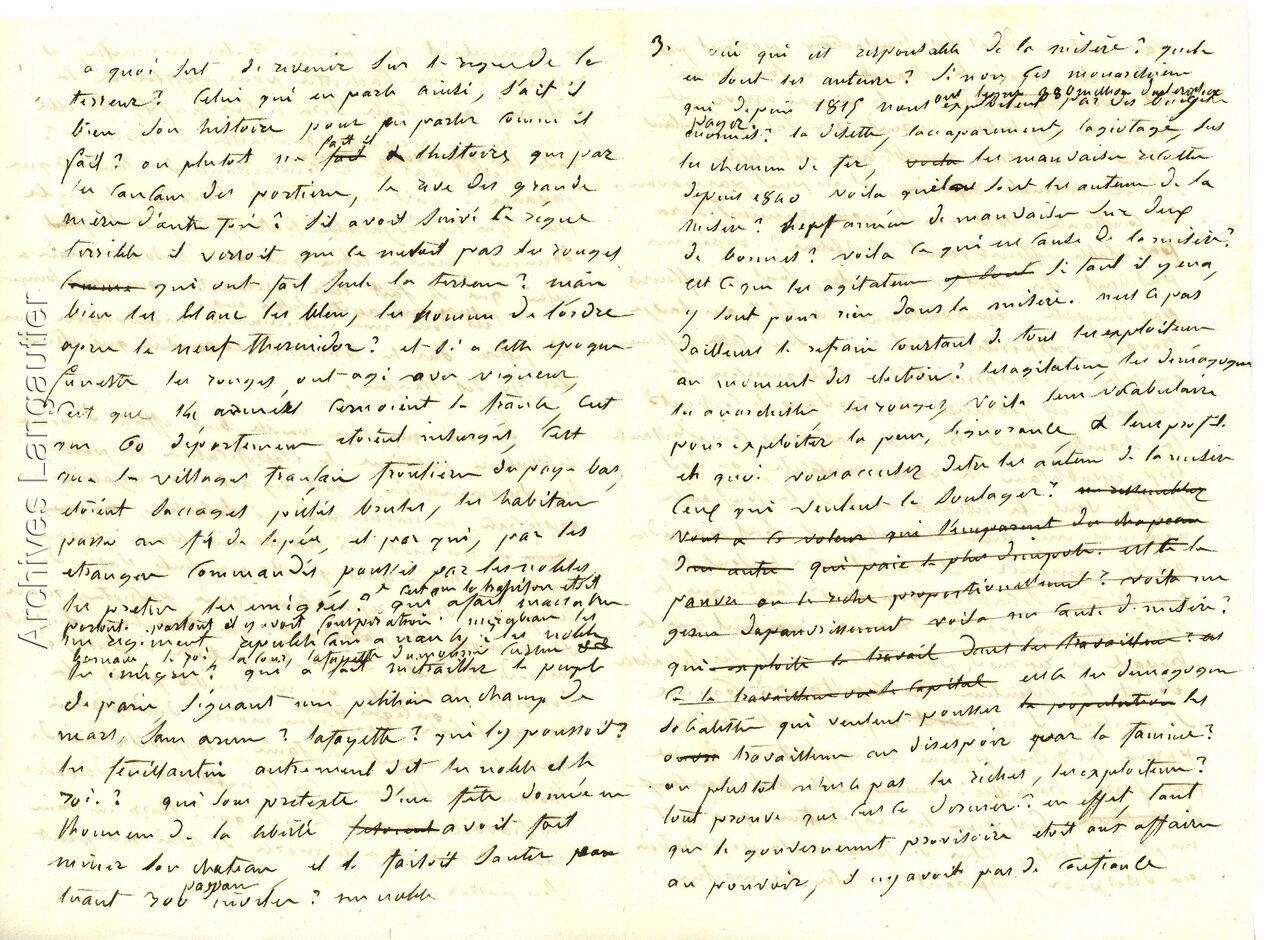 a quoi sert de revenir sur le regne de la
terreur? Celui qui en parle ainsi, sait il
bien son histoire pour en parler comme il
fait? ou plutot ne sait il l'histoire que par
les cancans des portiere, le reve des grands
mère d'autre foi? s'il avoit suivi le règne
terrible il verroit que ce netoit pas les rouges
comme qui ont fait seuls la terreur? mais
bien les blanc les bleu, les homme de l'ordre
apres le neuf thermidor? et si a cette epoque
funeste les rouges ont agi avec vigueur,
c'est que 14 armées cernoient la france, c'est
que 60 département etoient insurgés, c'est
que les villages français frontiere du pays bas,
etoient saccagés pillés brulés, les habitan
passé au fil de l'epée, et par qui, par les
etrangers commandés poussés par les nobles
c'est que la trahison etoit
les pretres, les emigrés? qui a fait massacrer
partout. partout il y avoit conspiration
un regiment republicain a nancy? les noble
le roi, la cour, lafayette dumourier
les emigrés? qui a fait mitrailler le peuple
de paris signant une petition au champ de
mars, sans armes? lafayette? qui l'y poussoit?
les feuillantin autrement dit les noble et le
roi? qui sous pretexte d'une fête donnée en
l'honneur de la liberté avoit fait
miner son chateau et le faisoit sauter
paysan
tuant 300 invités? un noble
3. oui qui est responsable de la misère? quels
en sont les auteurs? si non ces monarchiens
qui depuis 1815 nous ont exploitent par des budgets
payer
enormes? la disette, l'accaparement, l'agiotage, sur
les chemin de fer, voila les mauvaise recolte
depuis 1840 voila quels sont les auteurs de la
misère? sept années de mauvaises sur deux
de bonnes? voila ce qui est cause de la misère?
est ce que les agitateurs y sont si tant il y en a,
y sont pour rien dans la misère. nest ce pas
dailleurs le refrain constant de tous les exploiteurs
au moment des election? les agitateurs, les démagogues
les anarchistes les rouges, voila leur vocabulaire
pour exploiter la peur, lignorance, a leur profit.
eh quoi vous accusez detre les auteurs de la misère
ceux qui veulent la soulager? vous ressemblez
vous a ce voleur qui s'emparent du chapeau
d'un autre qui paie le plus d'impots. est ce le
pauvre ou le riche proportionellement? voila un
genre dapauvrissement voila une cause de misère?
qui exploite le travail sont les travailleurs? est
ce le travailleur ou le capital est ce les demagogues
socialistes qui veulent pousser la population les
travailleurs au desespoir par la famine?
ou plustot n'est ce pas les riches, les exploiteurs?
tout prouve que cest ce dernier? en effet, tant
que le gouvernement provisoire etoit aux affaires
au pouvoir, il n'y avoit pas de confiance
Archives Langautier